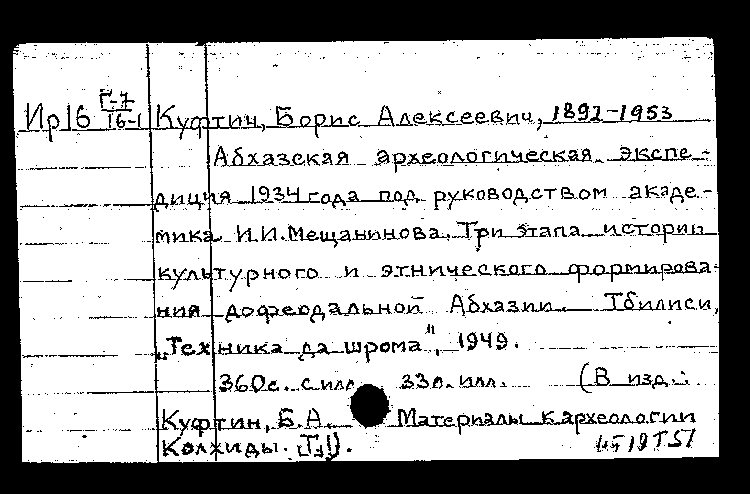 Ир16 Г-7/16-1 Куфтин, Борис Алексеевич, 1892-1953
Абхазская археологическая экспе-
диция 1934 года под руководством акаде-
мика И.И.Мещанинова. Три этапа истории
культурного и этнического формирова-
ния дофеодальной Абхазии. Тбилиси,
„Техника да шрома", 1949.
360с. с илл. 33л. илл. (В изд.:
Куфтин, Б.А. Материалы к археологии
Колхиды.